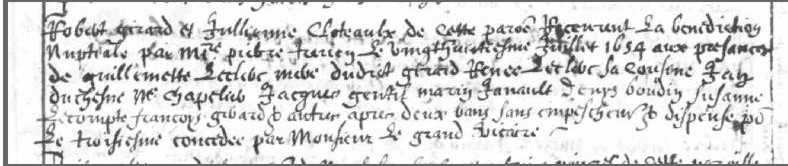 Robert girard et Jullienne Cloteaulx de cette paroe Recourant La benediction
Nuptiale par Mre pierre Le vingthuictiesme Juillet 1654 aux presances
de guillemette Leclerc mere dudict girard Renee Leclerc sa Cousine Jan
duchesne Me Chapelier Jacques gentil marin Janault Denys boudin Susanne
Lecompte francois girard & autres apres deux bans sans empeschemt & dispense po
Le troisiesme concedee par Monsieur Le grand vicaire